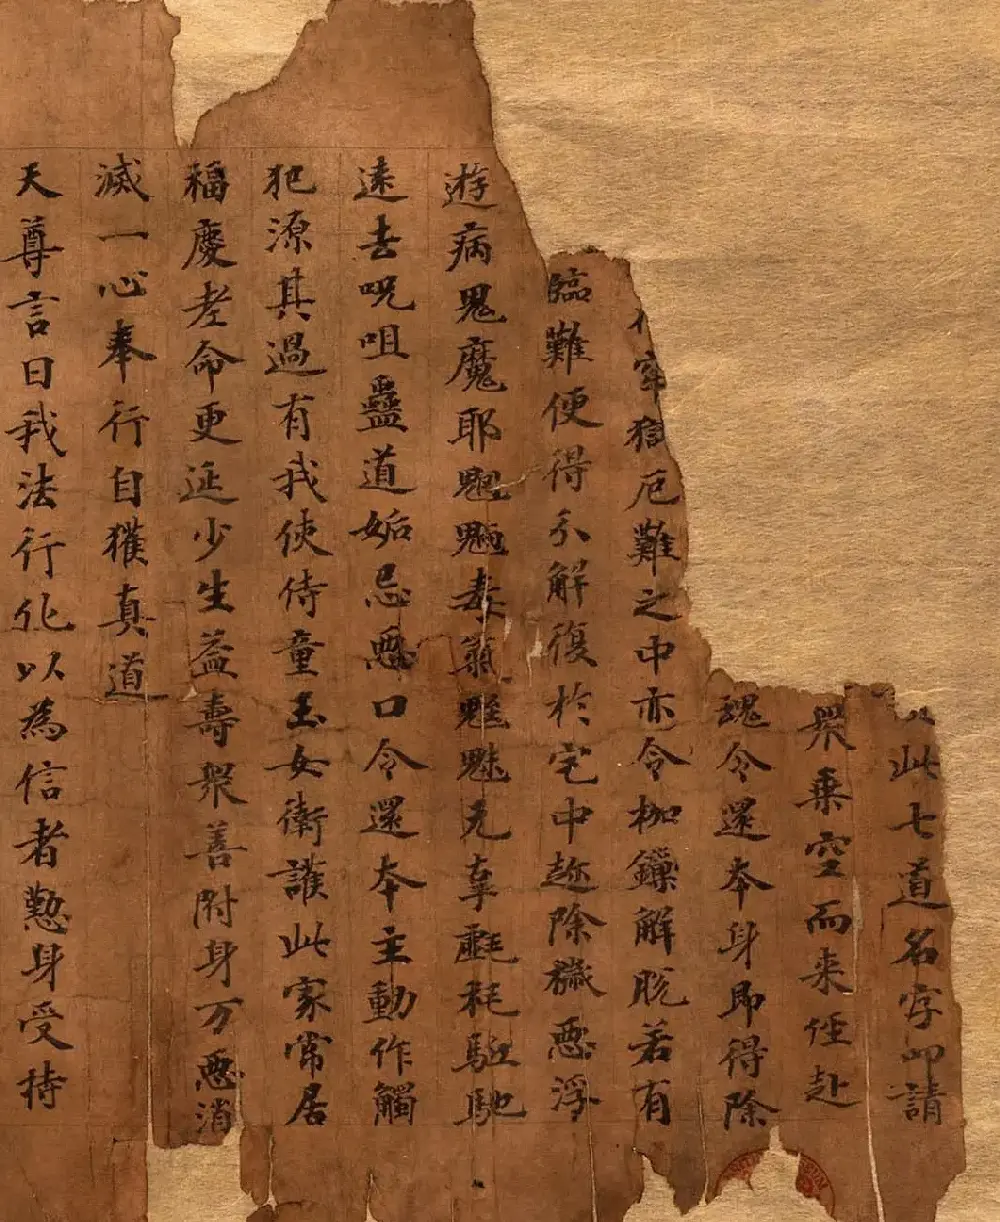 此七道名字叩請
眾乗空而来侄赴
魂令還夲身即得除
牢獄厄難之中亦令枷鏁解脫若有
臨難便得解復於宅中遊除穢惡浮
遊病鬼魔耶魍魎毒氣魑魅虛耗駈馳
遠去呪咀蠱道妬忌惡口令還夲主動作觸
犯源其過有我使侍童玉女衛護此家常居
福慶老命更延少生益壽眾善附身万惡消
滅一心奉行自獲真道
天尊言曰我法行化以為信者懃身受持